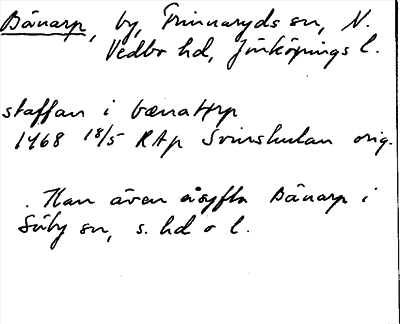 Bänarp, by, Frinnaryds sn, N.
Vedbo hd, Jönköpings l.
staffan i bænatorp
1468 18/5 RAp Svinhulan orig.
Kan även åsyfta Bänarp i
Säby sn, s. hd o l.